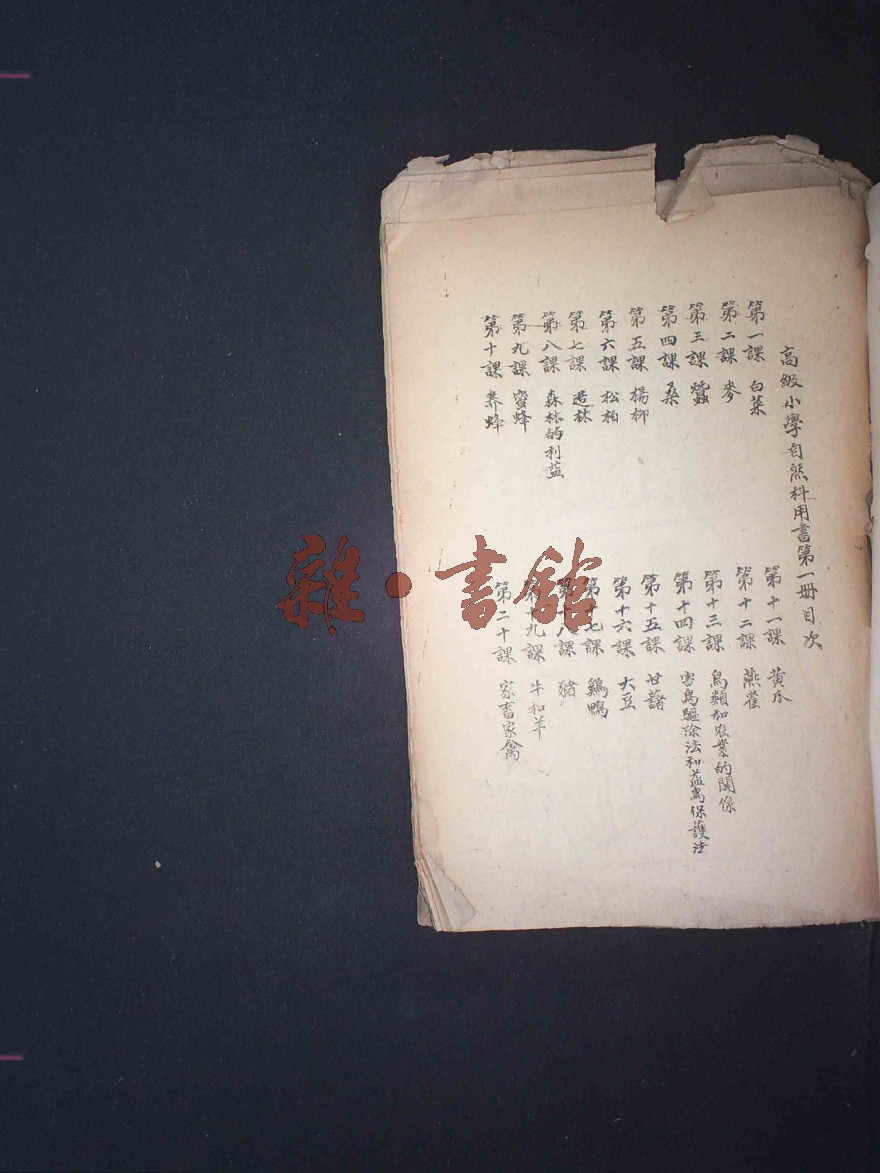 高級小學自然科用書第一冊目次
第一課 白菜
第二課 麥
第三課 蠶
第四課 桑
第五課 楊柳
第六課 松柏
第七課 造林
第八課 森林的利益
第九課 蜜蜂
第十課 養蜂
第十一課 黃瓜
第十二課 燕雀
第十三課 鳥類和農業的關係
第十四課 害鳥驅除法和益鳥保護法
第十五課 甘藷
第十六課 大豆
第十七課 鷄鴨
第十八課 豬
第十九課 牛和羊
第二十課 家畜家禽
雜·書館